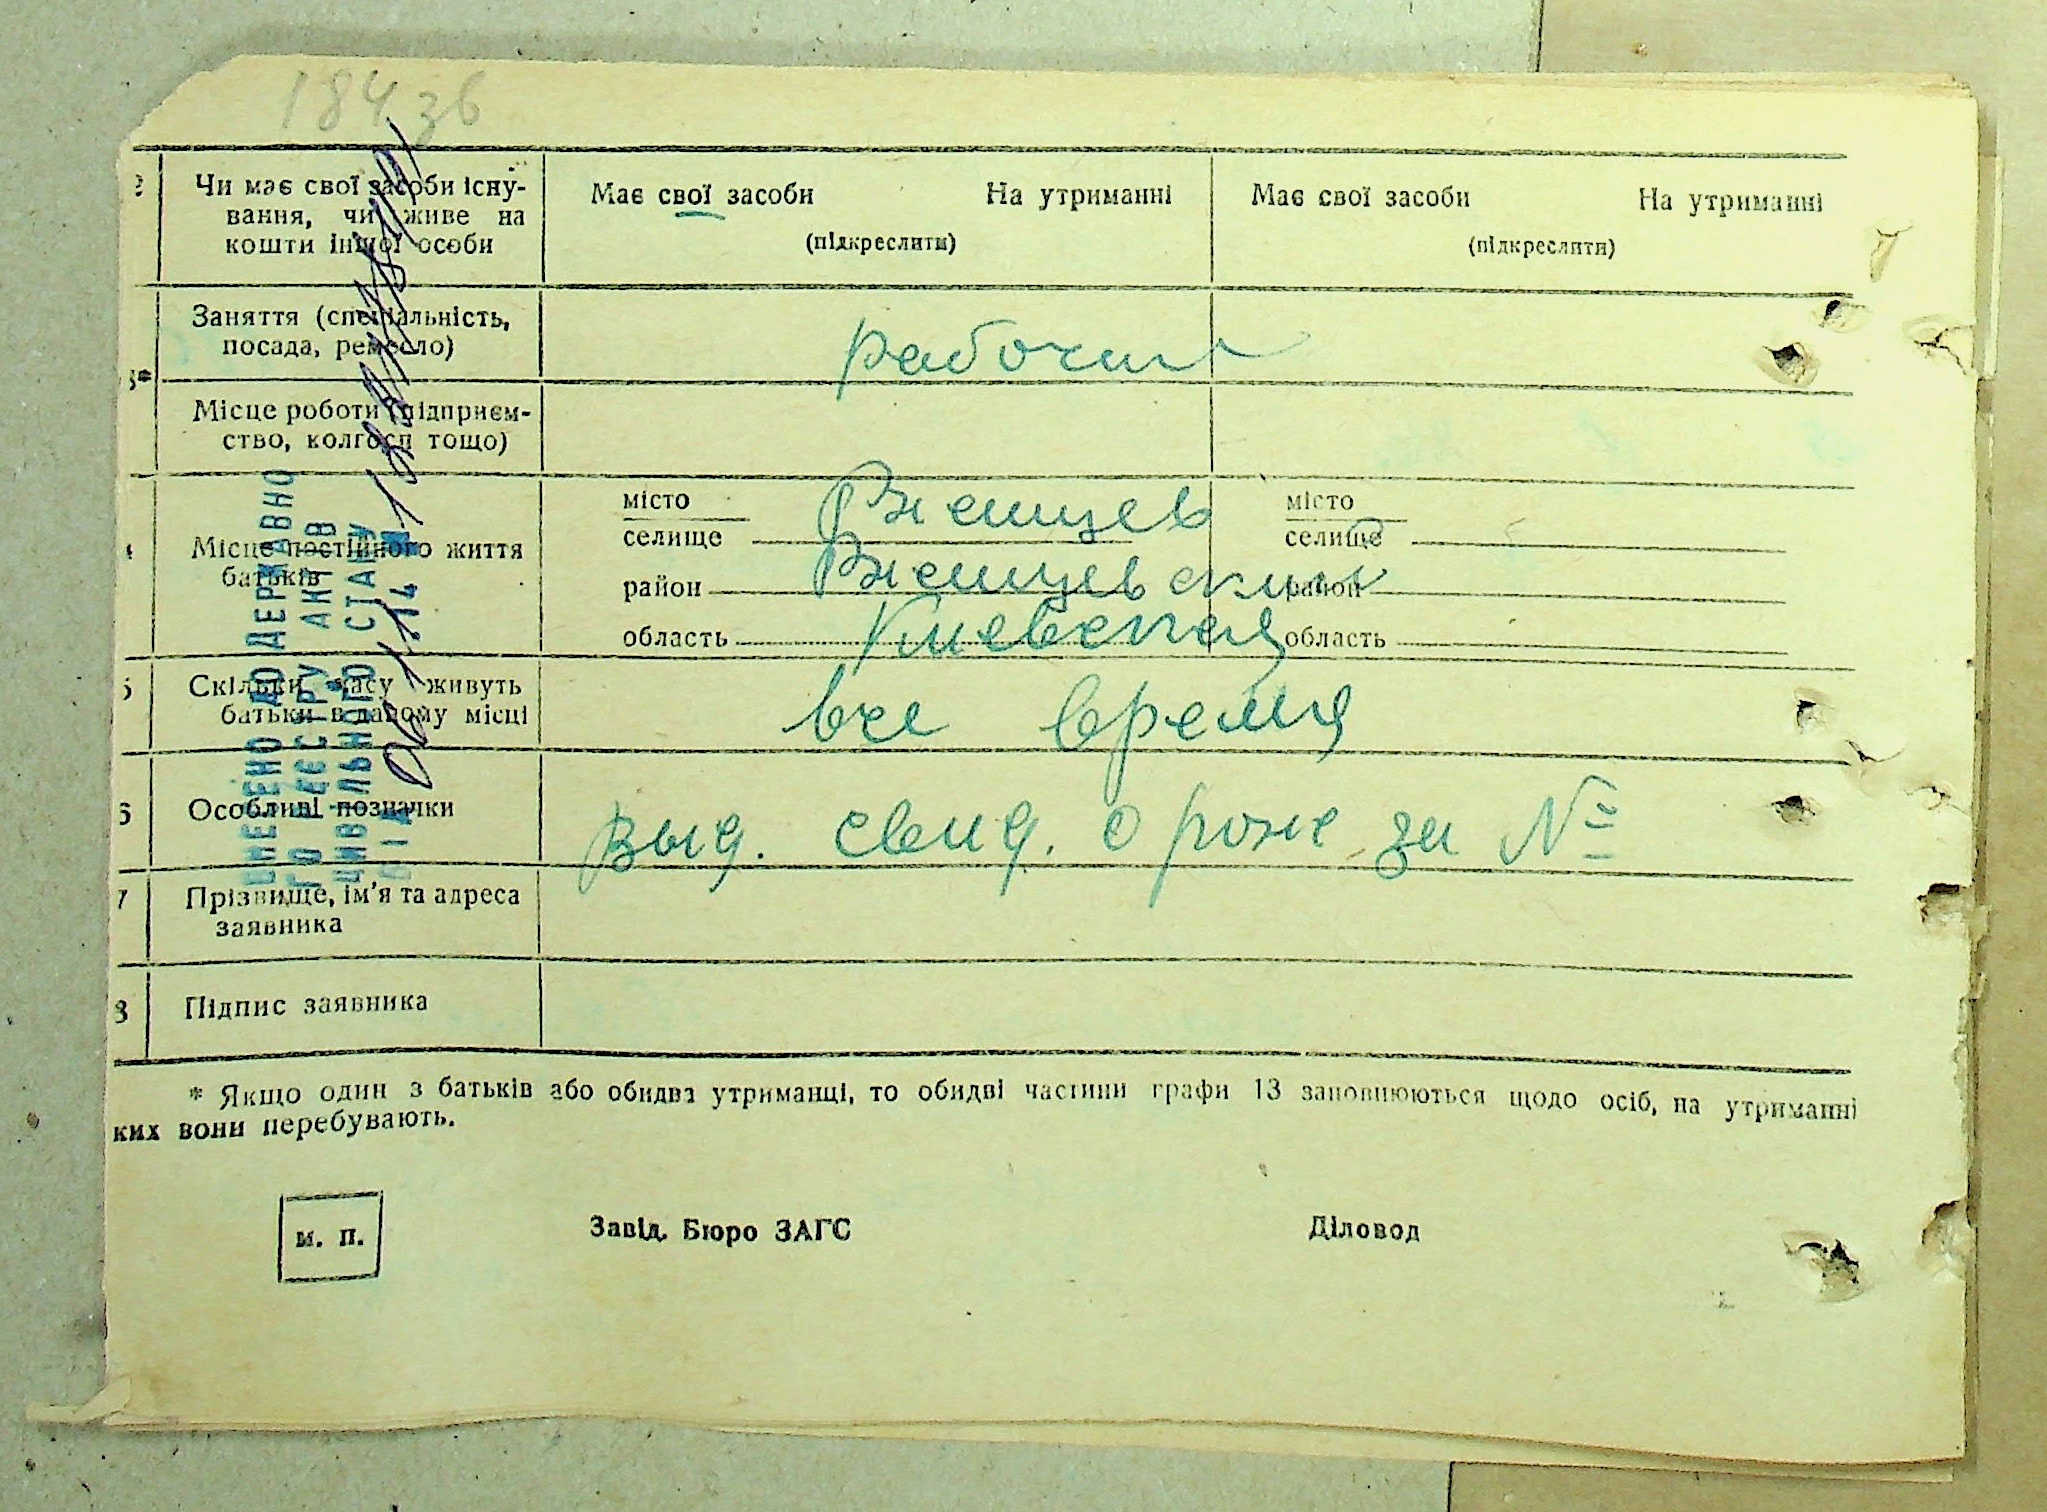 184 зв
2 Чи має свої засоби існу- Має свої засоби На утриманні Має свої засоби На утриманні
вання, чи живе на
кошти іншої особи (підкреслити) (підкреслити)
Заняття (спеціальність,
посада, ремесло) рабочий
3*
Місце роботи (підприєм-
ство, колгосп тощо)
місто Ржищев місто
селище селище
4 Місце постійного життя
батьків
район Ржищевский район
область Киевская область
5 Скільки часу живуть
батьки в даному місці все время
6 Особливі позначки выд. свид. о рож за №
7 Прізвище, ім'я та адреса
заявника
8 Підпис заявника
* Якщо один з батьків або обидва утриманці, то обидві частини графи 13 заповнюються щодо осіб, на утриманні
ких вони перебувають.
м. п. Завід. Бюро ЗАГС Діловод
ВНЕСЕНО ДО ДЕРЖАВНО
ГО РЕЄСТРУ АКТІВ
ЦИВІЛЬНОГО СТАНУ